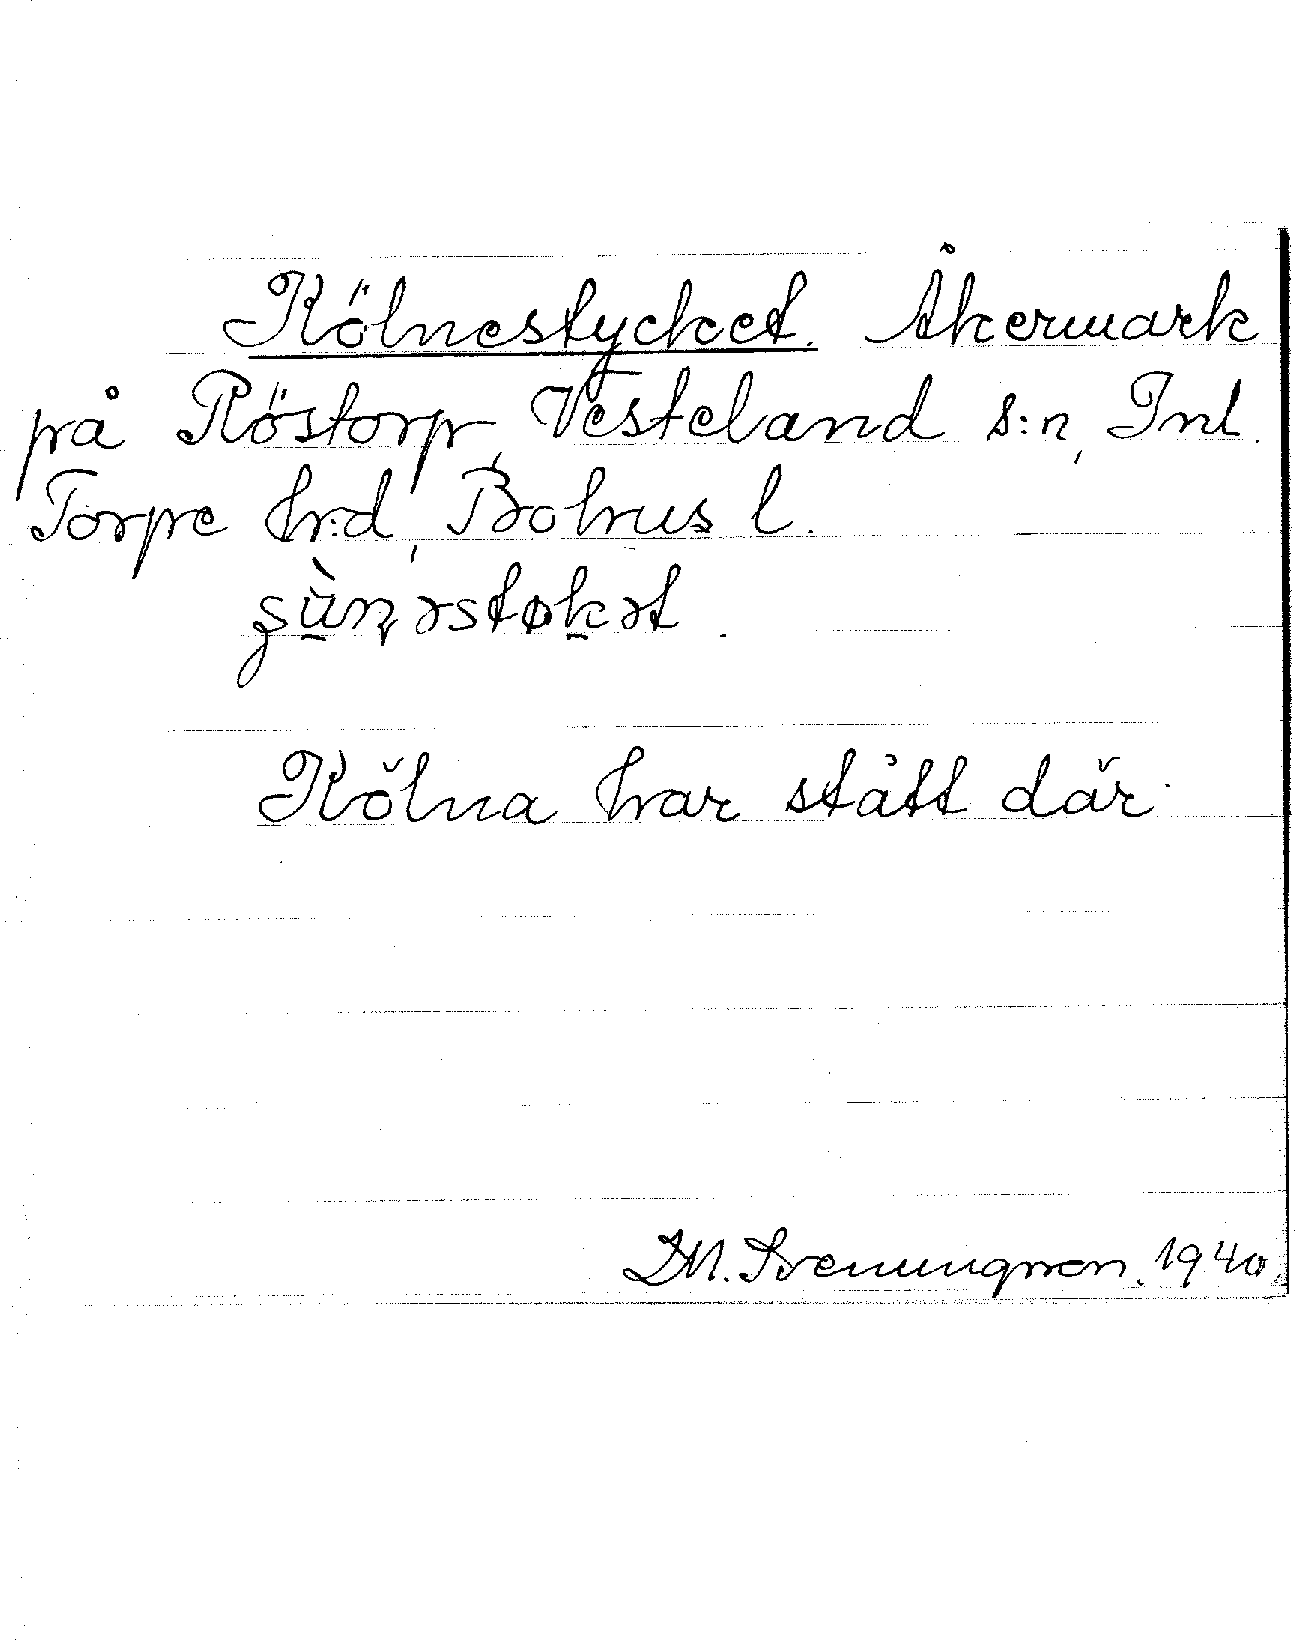 Kölnestycket. Åkermark
på Röstorp, Vesteland s:n, Inl.
Torpe hrd, Bohus l.
Kölna har stått där.
1940